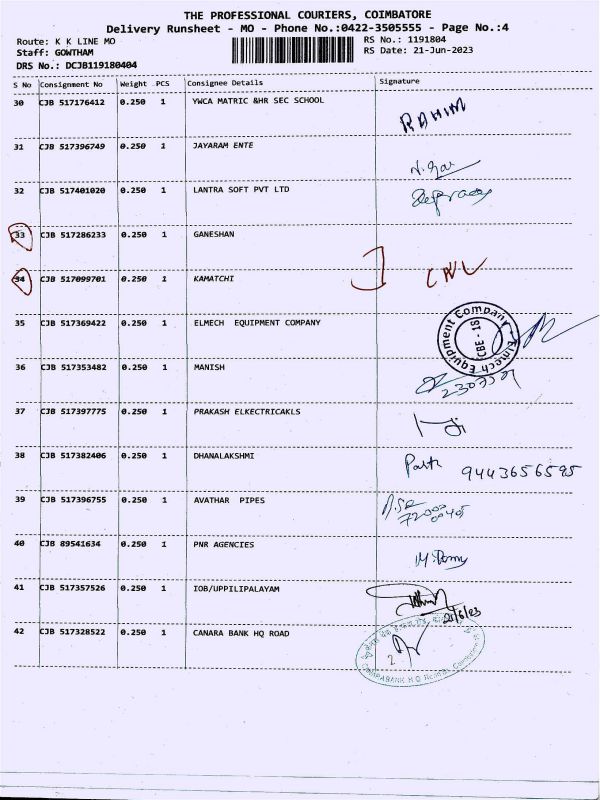 THE PROFESSIONAL COURIERS, COIMBATORE
Delivery Runsheet - MO - Phone No.:0422-3505555 - Page No.:4
Route: K K LINE MO
Staff: GOWTHAM
DRS No.: DCJB119180404
RS No.: 1191804
RS Date: 21-Jun-2023
S No Consignment No Weight PCS Consignee Details Signature
30 CJB 517176412 0.250 1 YWCA MATRIC &HR SEC SCHOOL RAHIM
31 CJB 517396749 0.250 1 JAYARAM ENTE
32 CJB 517401020 0.250 1 LANTRA SOFT PVT LTD
33 CJB 517286233 0.250 1 GANESHAN
34 CJB 517099701 0.250 1 KAMATCHI
35 CJB 517369422 0.250 1 ELMECH EQUIPMENT COMPANY
Equipment Company
CBE - 18
36 CJB 517353482 0.250 1 MANISH
37 CJB 517397775 0.250 1 PRAKASH ELKECTRICAKLS
38 CJB 517382406 0.250 1 DHANALAKSHMI 9443656595
39 CJB 517396755 0.250 1 AVATHAR PIPES
40 CJB 89541634 0.250 1 PNR AGENCIES
41 CJB 517357526 0.250 1 IOB/UPPILIPALAYAM
21/6/23
42 CJB 517328522 0.250 1 CANARA BANK HQ ROAD